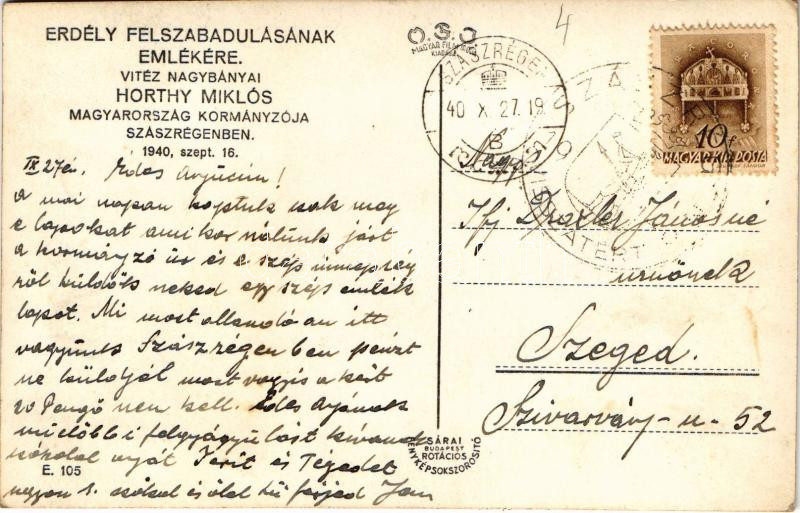 ERDÉLY FELSZABADULÁSÁNAK
EMLÉKÉRE.
VITÉZ NAGYBÁNYAI
HORTHY MIKLÓS
MAGYARORSZÁG KORMÁNYZÓJA
SZÁSZRÉGENBEN.
1940, szept. 16.
O.S.O
MAGYAR FILM IRODA
KIADÁSA
4
SZÁSZRÉGEN
40 X 27.19
B
10f
MAGYAR KIR. POSTA
VISSZATÉRT
IX 27én. Édes Anyucim!
a mai napon kaptuk csak meg
e lapokat amikor nálunk járt
a kormányzó úr és e szép ünnepség
ről küldök neked egy szép emlék
lapot. Mi most állandóan itt
vagyunk Szászrégenben pénzt
ne küldjél most vagyis a kért
20 Pengő nem kell. Édes Anyának
mielőbbi felgyógyulást kívánok
csókolal Terit és Tégedet
nagyon s. csókol és ölel hű férjed Jani
Nagys.
Ifj Draxler Jánosné
urnőnek
Szeged.
Szivárvány-u-52
SÁRAI
BUDAPEST
ROTÁCIÓS
FÉNYKÉPSOKSZOROSITÓ
E. 105